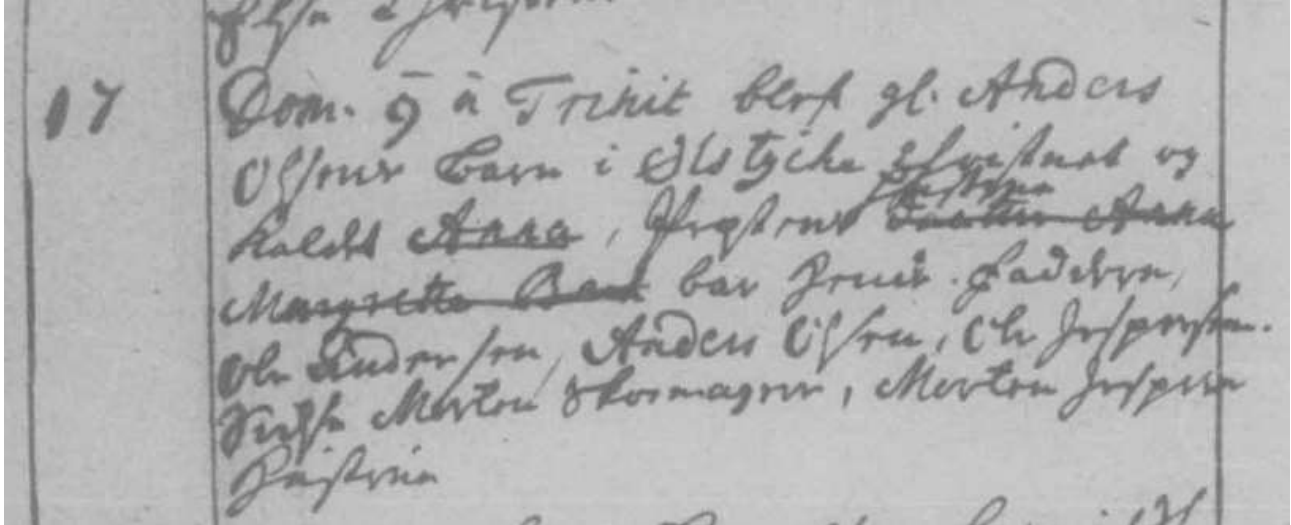 17
Dom. 9 à Trinit blef gl. Anders
Olsens Barn i Ølstyche Christnet og
Kaldet Anna, Præstens Hustrue Anna
Margrethe bar hende. Faddere,
Ole Andersen, Anders Olsen, Ole Jespersen.
Morten Skomager, Morten Jespers
Hustrue